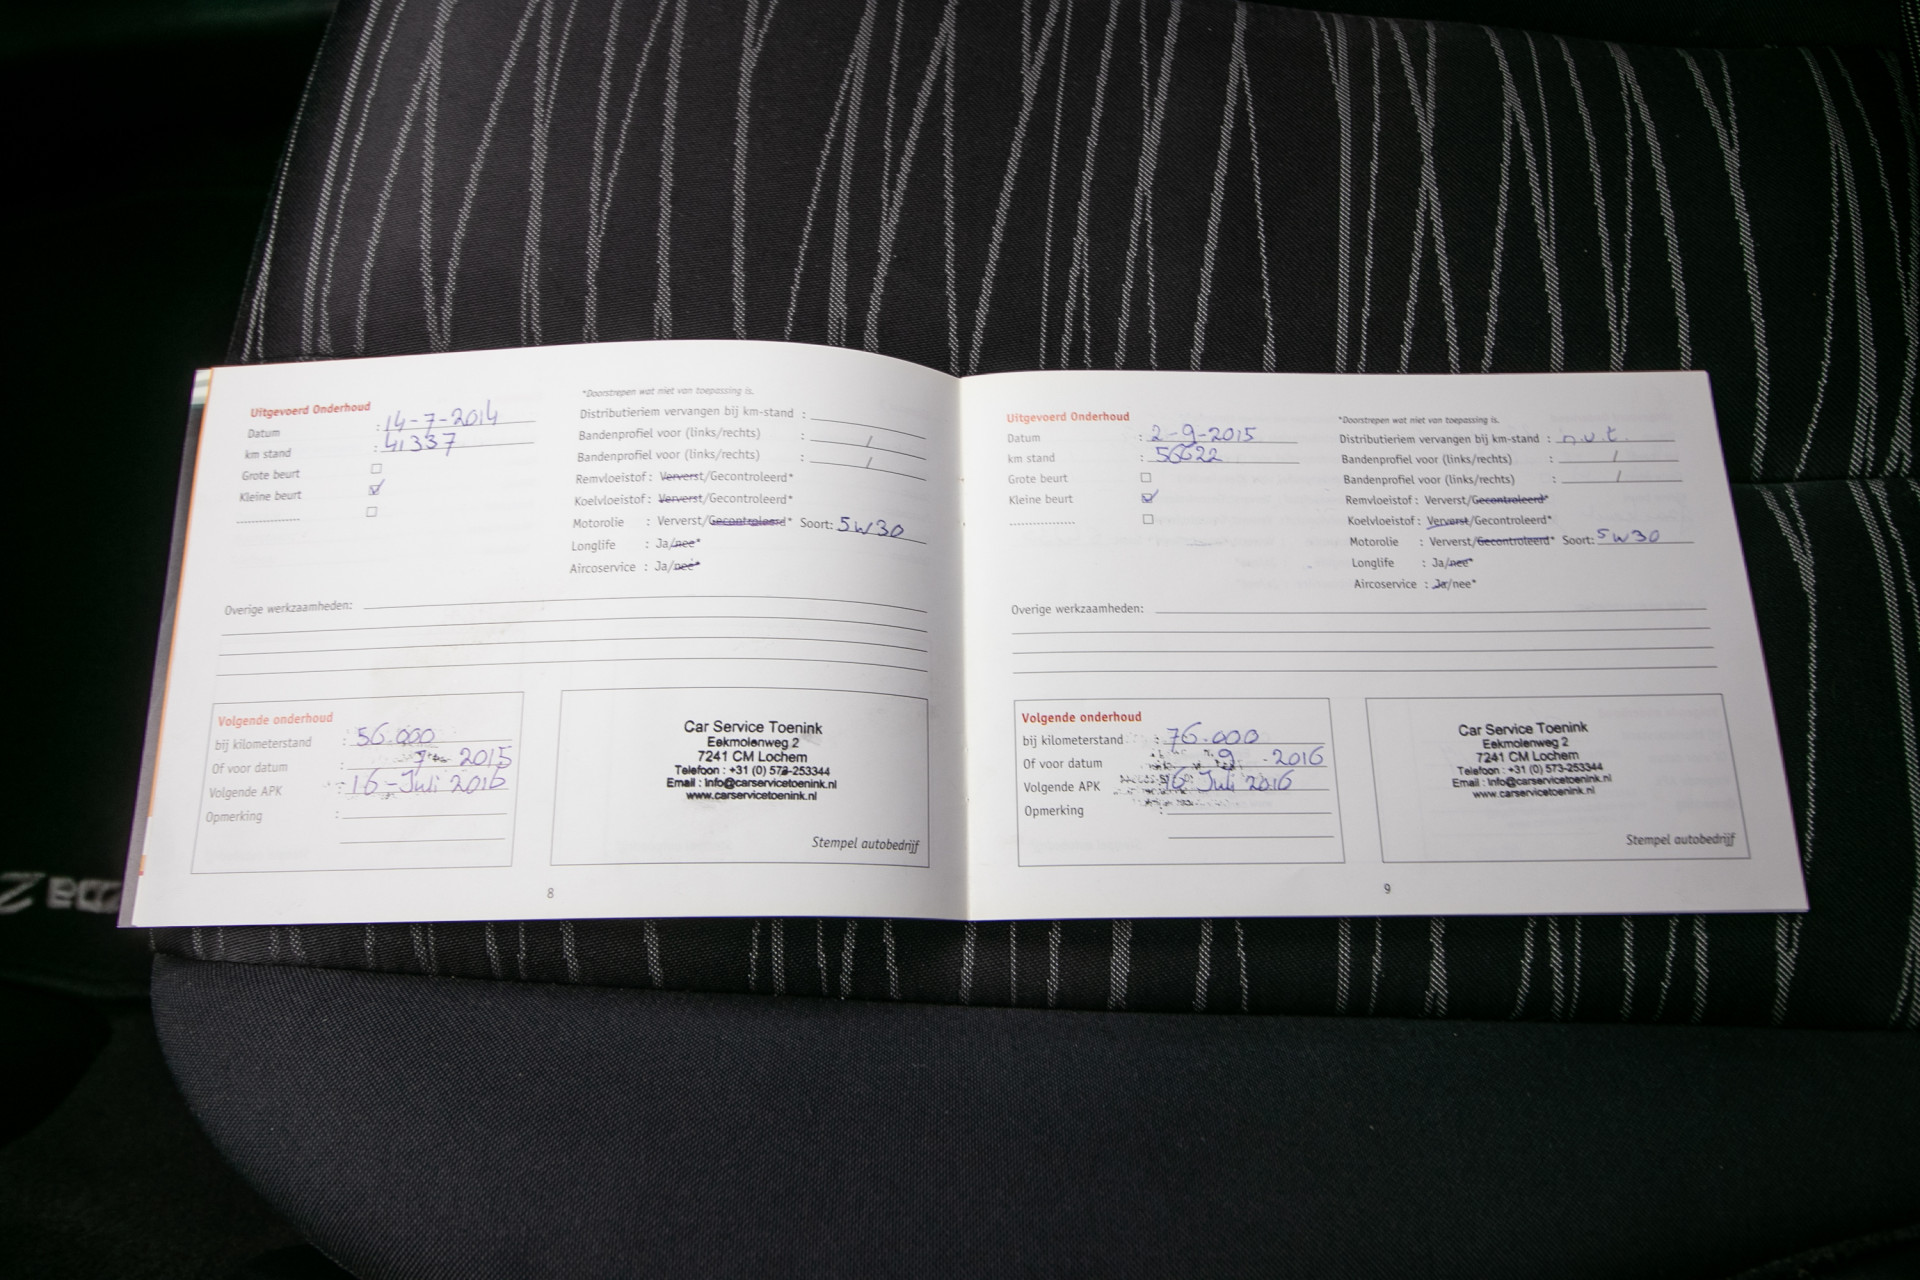 Uitgevoerd Onderhoud
Datum : 14-7-2014
km stand : 41337
Grote beurt
Kleine beurt
*Doorstrepen wat niet van toepassing is.
Distributieriem vervangen bij km-stand :
Bandenprofiel voor (links/rechts) : /
Bandenprofiel voor (links/rechts) : /
Remvloeistof : Ververst/Gecontroleerd*
Koelvloeistof : Ververst/Gecontroleerd*
Motorolie : Ververst/Gecontroleerd* Soort: 5W30
Longlife : Ja/nee*
Aircoservice : Ja/nee*
Overige werkzaamheden:
Volgende onderhoud
bij kilometerstand : 56.000
Of voor datum : 2015
Volgende APK : 16-Juli 2016
Opmerking :
Car Service Toenink
Eekmolenweg 2
7241 CM Lochem
Telefoon : +31 (0) 573-253344
Email : Info@carservicetoenink.nl
www.carservicetoenink.nl
Stempel autobedrijf
8
Uitgevoerd Onderhoud
Datum : 2-9-2015
km stand : 56622
Grote beurt
Kleine beurt
*Doorstrepen wat niet van toepassing is.
Distributieriem vervangen bij km-stand : n.v.t.
Bandenprofiel voor (links/rechts) : /
Bandenprofiel voor (links/rechts) : /
Remvloeistof : Ververst/Gecontroleerd*
Koelvloeistof : Ververst/Gecontroleerd*
Motorolie : Ververst/Gecontroleerd* Soort: 5W30
Longlife : Ja/nee*
Aircoservice : Ja/nee*
Overige werkzaamheden:
Volgende onderhoud
bij kilometerstand : 76.000
Of voor datum : 9 - 2016
Volgende APK 16 Juli 2016
Opmerking :
Car Service Toenink
Eekmolenweg 2
7241 CM Lochem
Telefoon : +31 (0) 573-253344
Email : Info@carservicetoenink.nl
www.carservicetoenink.nl
Stempel autobedrijf
9